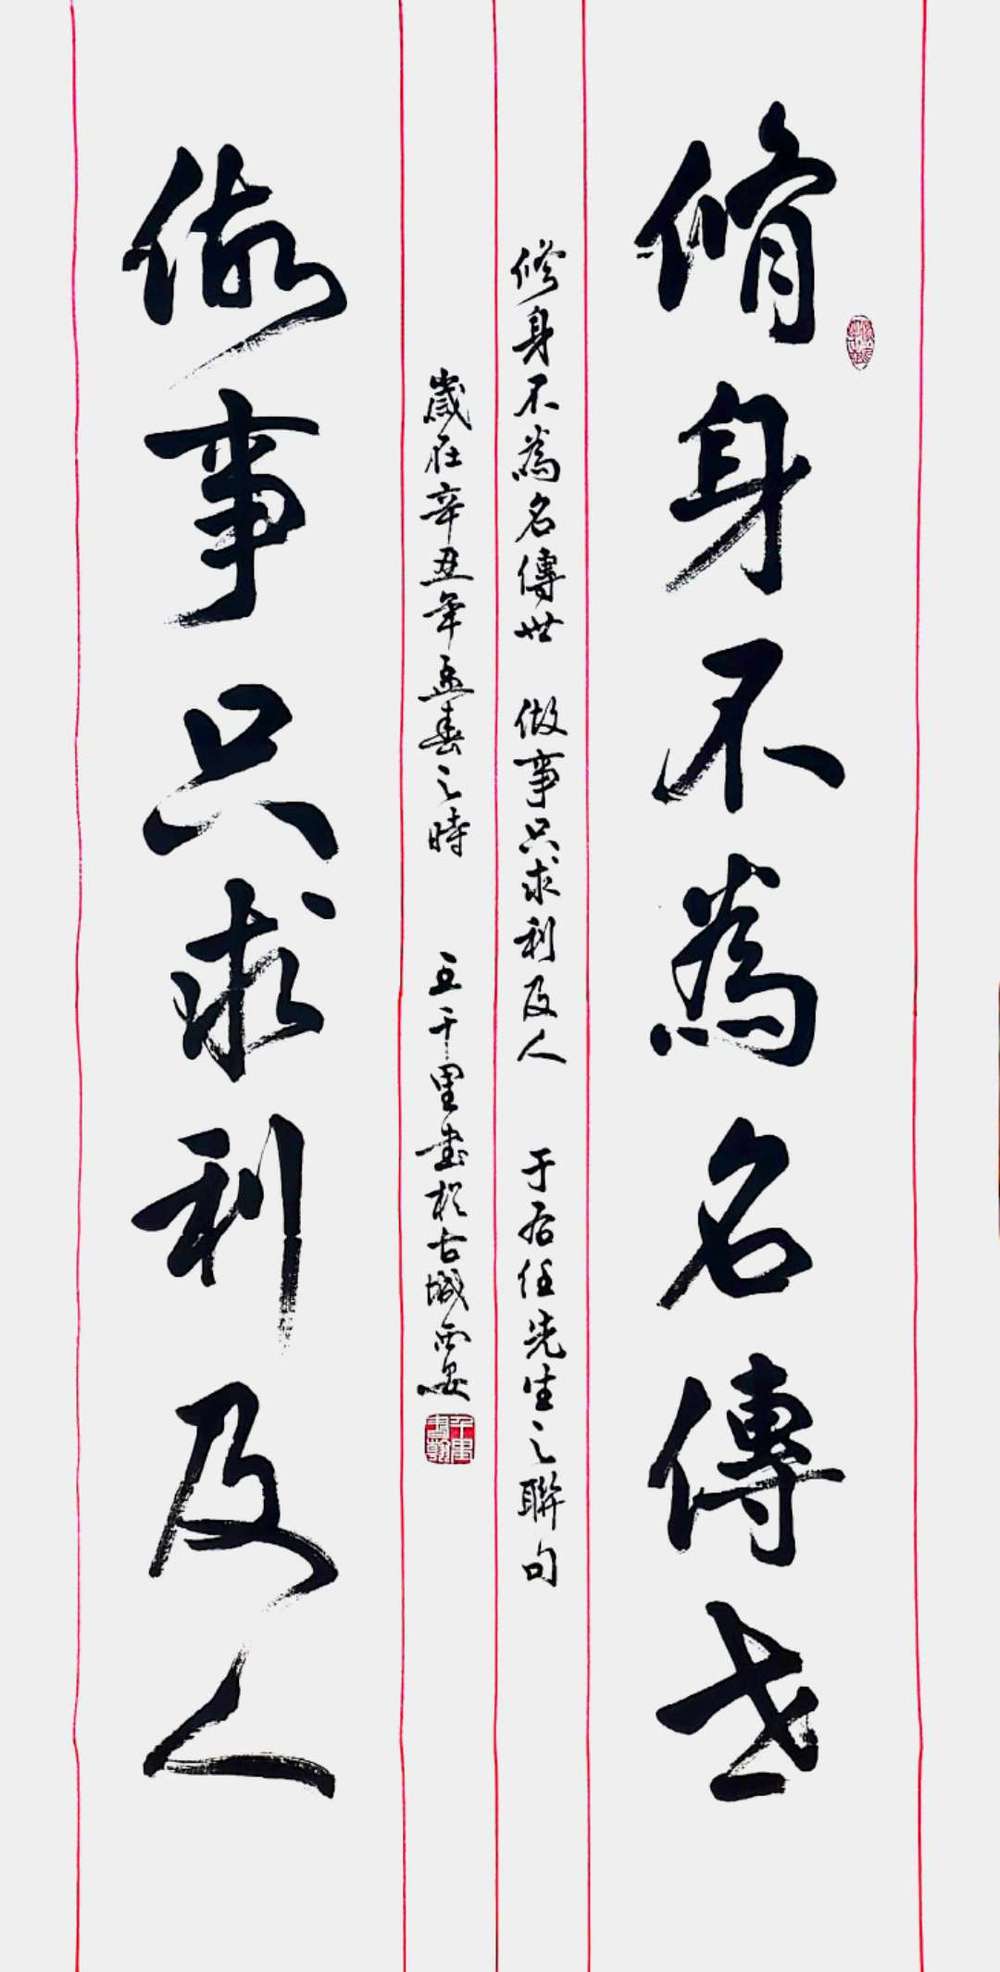 脩身不為名傳世
修身不為名傳世 做事只求利及人 于右任先生之聯句
歲在辛丑年孟春之時 王千里書於古城西安
千里書翰
做事只求利及人